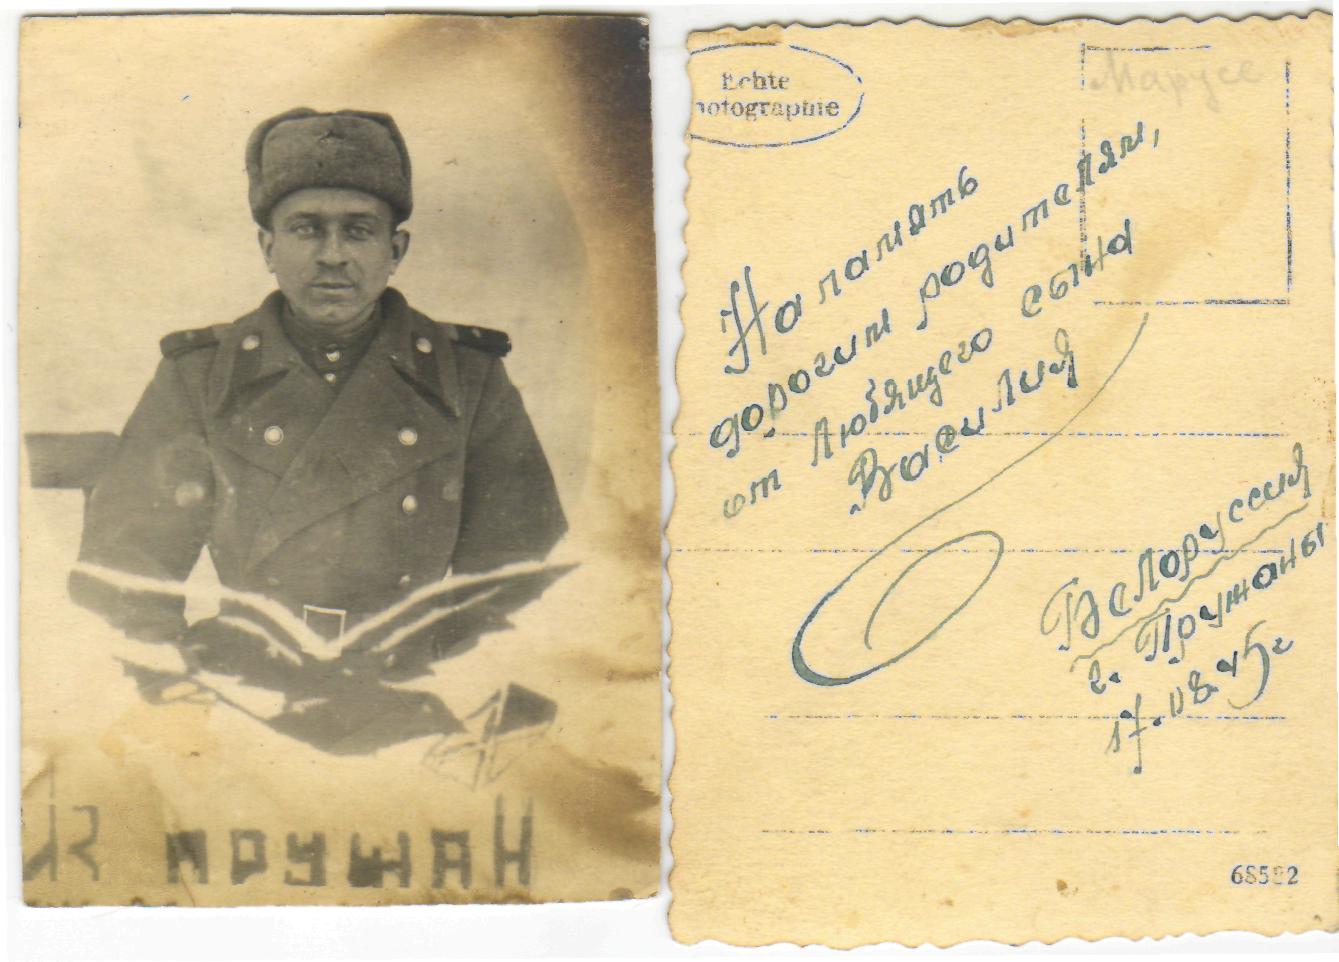 Из Пружан
Echte
Photographie
Марусе
На память
дорогим родителям,
от любящего сына
Василия
Белоруссия
г. Пружаны
17.08.45г
68582